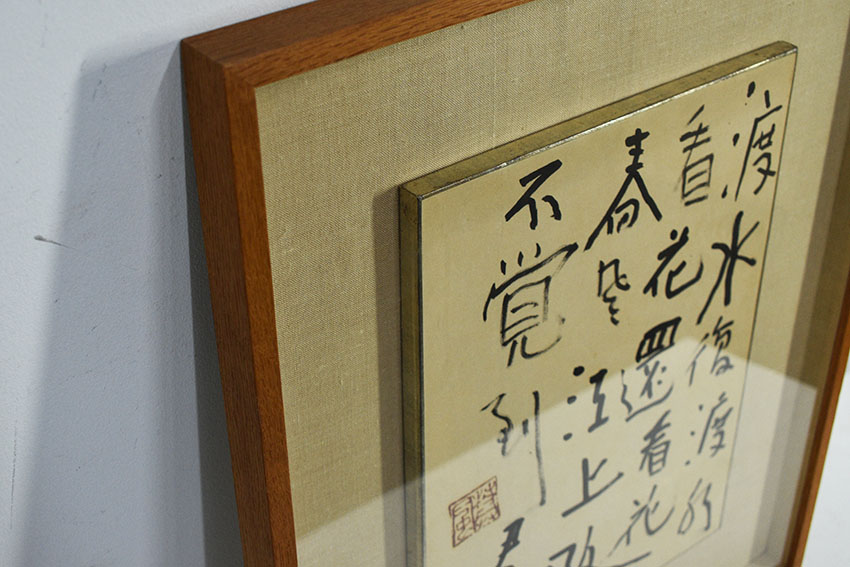 渡水復渡水
看花還看花
春風江上
不覚到